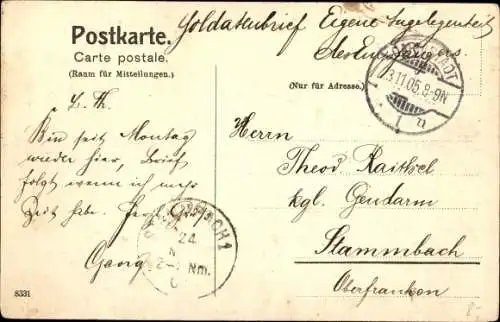 Postkarte.
Carte postale.
(Raum für Mitteilungen.)
Soldatenbrief Eigene Angelegenheit
des Empfängers.
(Nur für Adresse.)
3.11.05.8-9N
L. Th.
Bin seit Montag
wieder hier, Brief
folgt wenn ich mehr
Zeit habe.
Georg
Herrn
Theod Raithel
kgl. Gendarm
Stammbach
Oberfranken
24
N
Nm.
8331